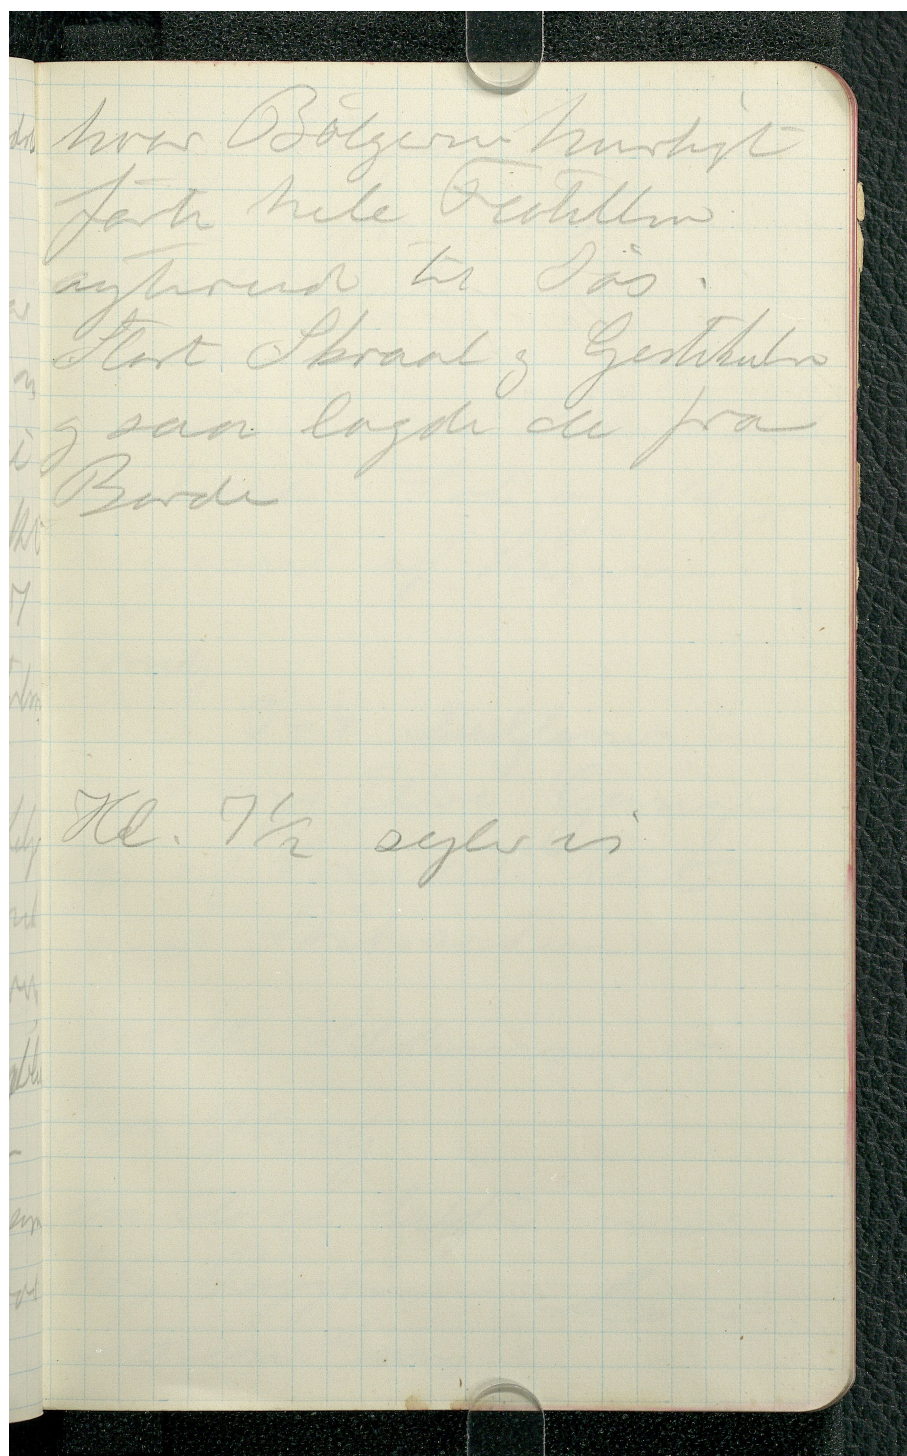 hvor Bölgerne hurtigt
förte hele Flotillen
agterud til Søs.
Stort Skraal og Gestikulen
og saa lagde de fra
Borde
Kl. 7½ sejler vi